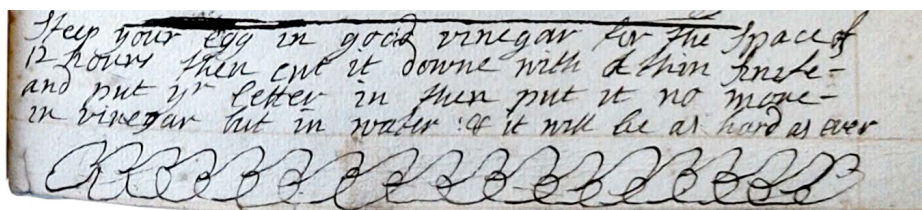 Steep your egg in good vinegar for the space of
12 hours then cut it downe with a thin knife-
and put yr letter in then put it no more-
in vinegar but in water :& it will be as hard as ever